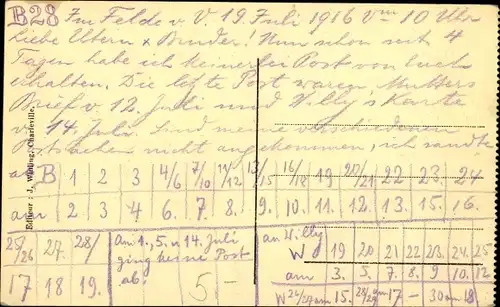 B28 Im Felde v. V. 19. Juli 1916 Vm 10 Uhr
Liebe Eltern + Bruder! Nun schon seit 4
Tagen habe ich keinerlei Post von Euch
erhalten. Die letzte Post waren Mutters
Brief v. 12. Juli und Willy's Karte
v. 14. Juli. Sind meine verschiedenen
Postsachen nicht angekommen, ich sandte
ab B 1 2 3 4/6 7/10 11/12 13/15 16/18 19 20/21 22 23. 24
am 2. 3. 4. 6. 7. 8. 9. 10. 11. 12. 13. 15. 16.
25/26 27. 28/ Am 1., 5. u 14. Juli an Willy W 19 20 21 22 23 24 25
17 18 19. ging keine Post am 3. 5. 7. 8. 9 10. 12
ab. 5 — W 26/27 am 15. 28/29 am 17 — 30 am 18
Editeur : J. Winling, Charleville.